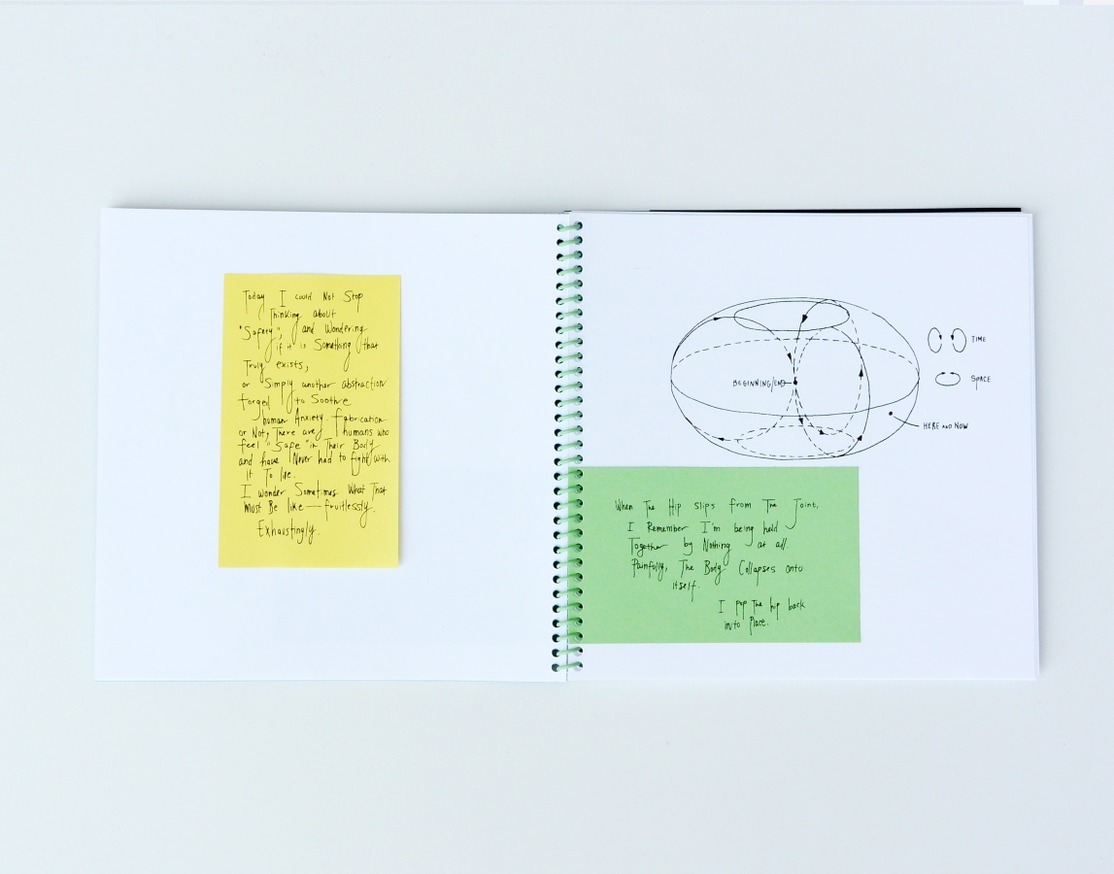 Today I could Not Stop
Thinking about
"Safety", and Wondering
if it is Something that
Truly exists,
or Simply another abstraction
forged to Soothe
human Anxiety. Fabrication
or Not, There are humans who
feel "Safe" in Their Body
and have Never had to fight with
it To live.
I wonder Sometimes What That
Must Be like — fruitlessly.
Exhaustingly.
BEGINNING/END
TIME
SPACE
HERE AND NOW
When The Hip slips from The Joint,
I Remember I'm being held
Together by Nothing at all.
Painfully, The Body Collapses onto
itself.
I pop The hip back
into Place.